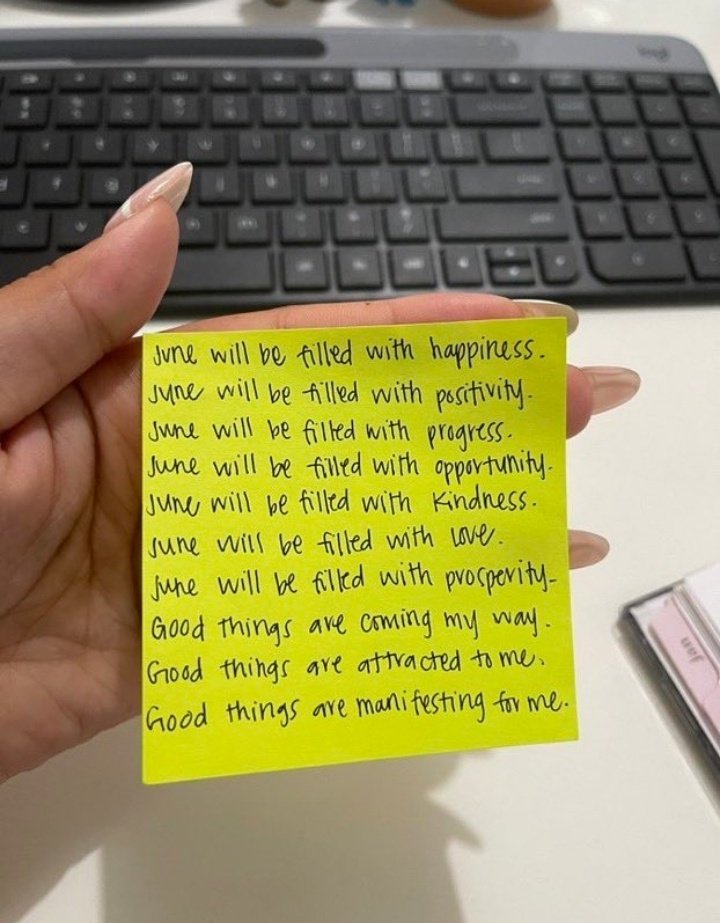 logi
June will be filled with happiness.
June will be filled with positivity.
June will be filled with progress.
June will be filled with opportunity.
June will be filled with kindness.
June will be filled with love.
June will be filled with prosperity.
Good things are coming my way.
Good things are attracted to me.
Good things are manifesting for me.
Jan